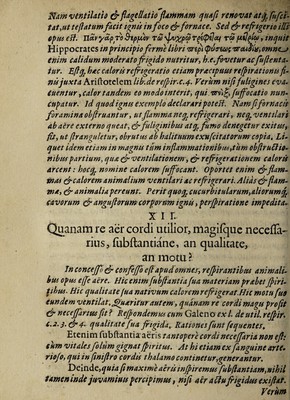 Nam ventilatio & flagellatio flammam quasi renovat atq, suſci-
tat, ut teſtatum facit ignis in foco & fornace. Sed & refrigerio illi
opus eſt. inquit
Hippocrates in principio fermè libri omne
enim calidum moderato frigido nutritur, h.e. fovetur ac ſuſtenta-
tur. Eſtq, hæc caloris refrigeratio etiam præcipuus reſpirationis fi-
nis juxta Ariſtotelem lib. de reſpir. c.4. Verùm niſi fuligines eva-
cuentur, calor tandem eo modo interit, qui ſuffocatio nun-
cupatur. Id quod ignis exemplo declarari poteſt. Nam ſi fornacis
foramina obſtruantur, ut flamma neq, refrigerari, neq, ventilari
ab aëre externo queat, & fuliginibus atq, fumo denegetur exitus,
fit, ut ſtranguletur, obrutus ab halituum exuſtorum copia. Li-
quet idem etiam in magna tùm inflammationibus, tùm obſtructio-
nibus partium, quæ & ventilationem, & refrigerationem caloris
arcent: hocq, nomine calorem ſuffocant. Oportet enim & flam-
mas & calorem animalium ventilari ac refrigerari. Aliàs & flam-
mæ, & animalia pereunt. Perit quoq, cucurbitularum, aliorumq,
cavorum & anguſtorum corporum ignis, perſpiratione impedita.
XII.
Quanam re aër cordi utilior, magiſque neceſſa-
rius, ſubſtantiâne, an qualitate,
an motu?
In conceſſo & confeſſo eſt apud omnes, reſpirantibus animali-
bus opus eſſe aëre. Hic enim ſubſtantia ſua materiam præbet ſpiri-
tibus. Hic qualitate ſua nativum calorem refrigerat. Hic motu ſuo
eundem ventilat. Quæritur autem, quânam re cordi magis proſit
& neceſſarius ſit? Reſpondemus cum Galeno ex l. de util. reſpir.
c.2.3. & 4. qualitate ſua frigida, Rationes ſunt ſequentes.
Etenim ſubſtantia aëris tantoperè cordi neceſſaria non eſt:
cùm vitales ſolùm gignat ſpiritus. At hi etiam ex ſanguine arte-
rioſo, qui in ſiniſtro cordis thalamo continetur, generantur.
Deinde, quia ſi maximè aëris inſpiremus ſubſtantiam, nihil
tamen inde juvamius percipimus, niſi aër actu frigidus exiſtat.
Verùm